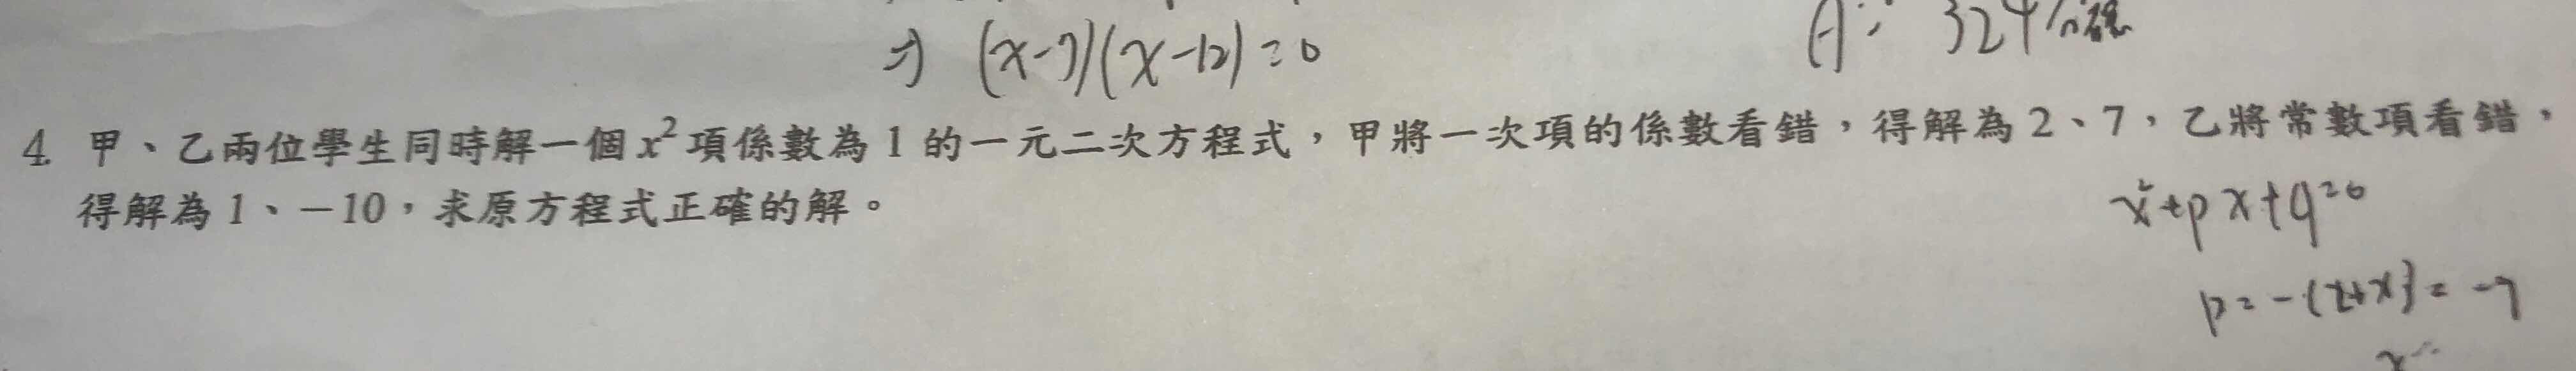 ⇒ (x-7)(x-12)=0
A: 324
4. 甲、乙兩位學生同時解一個 x² 項係數為 1 的一元二次方程式，甲將一次項的係數看錯，得解為 2、7，乙將常數項看錯，
得解為 1、－10，求原方程式正確的解。
x²+px+q=0
p=-(2+x)=-7